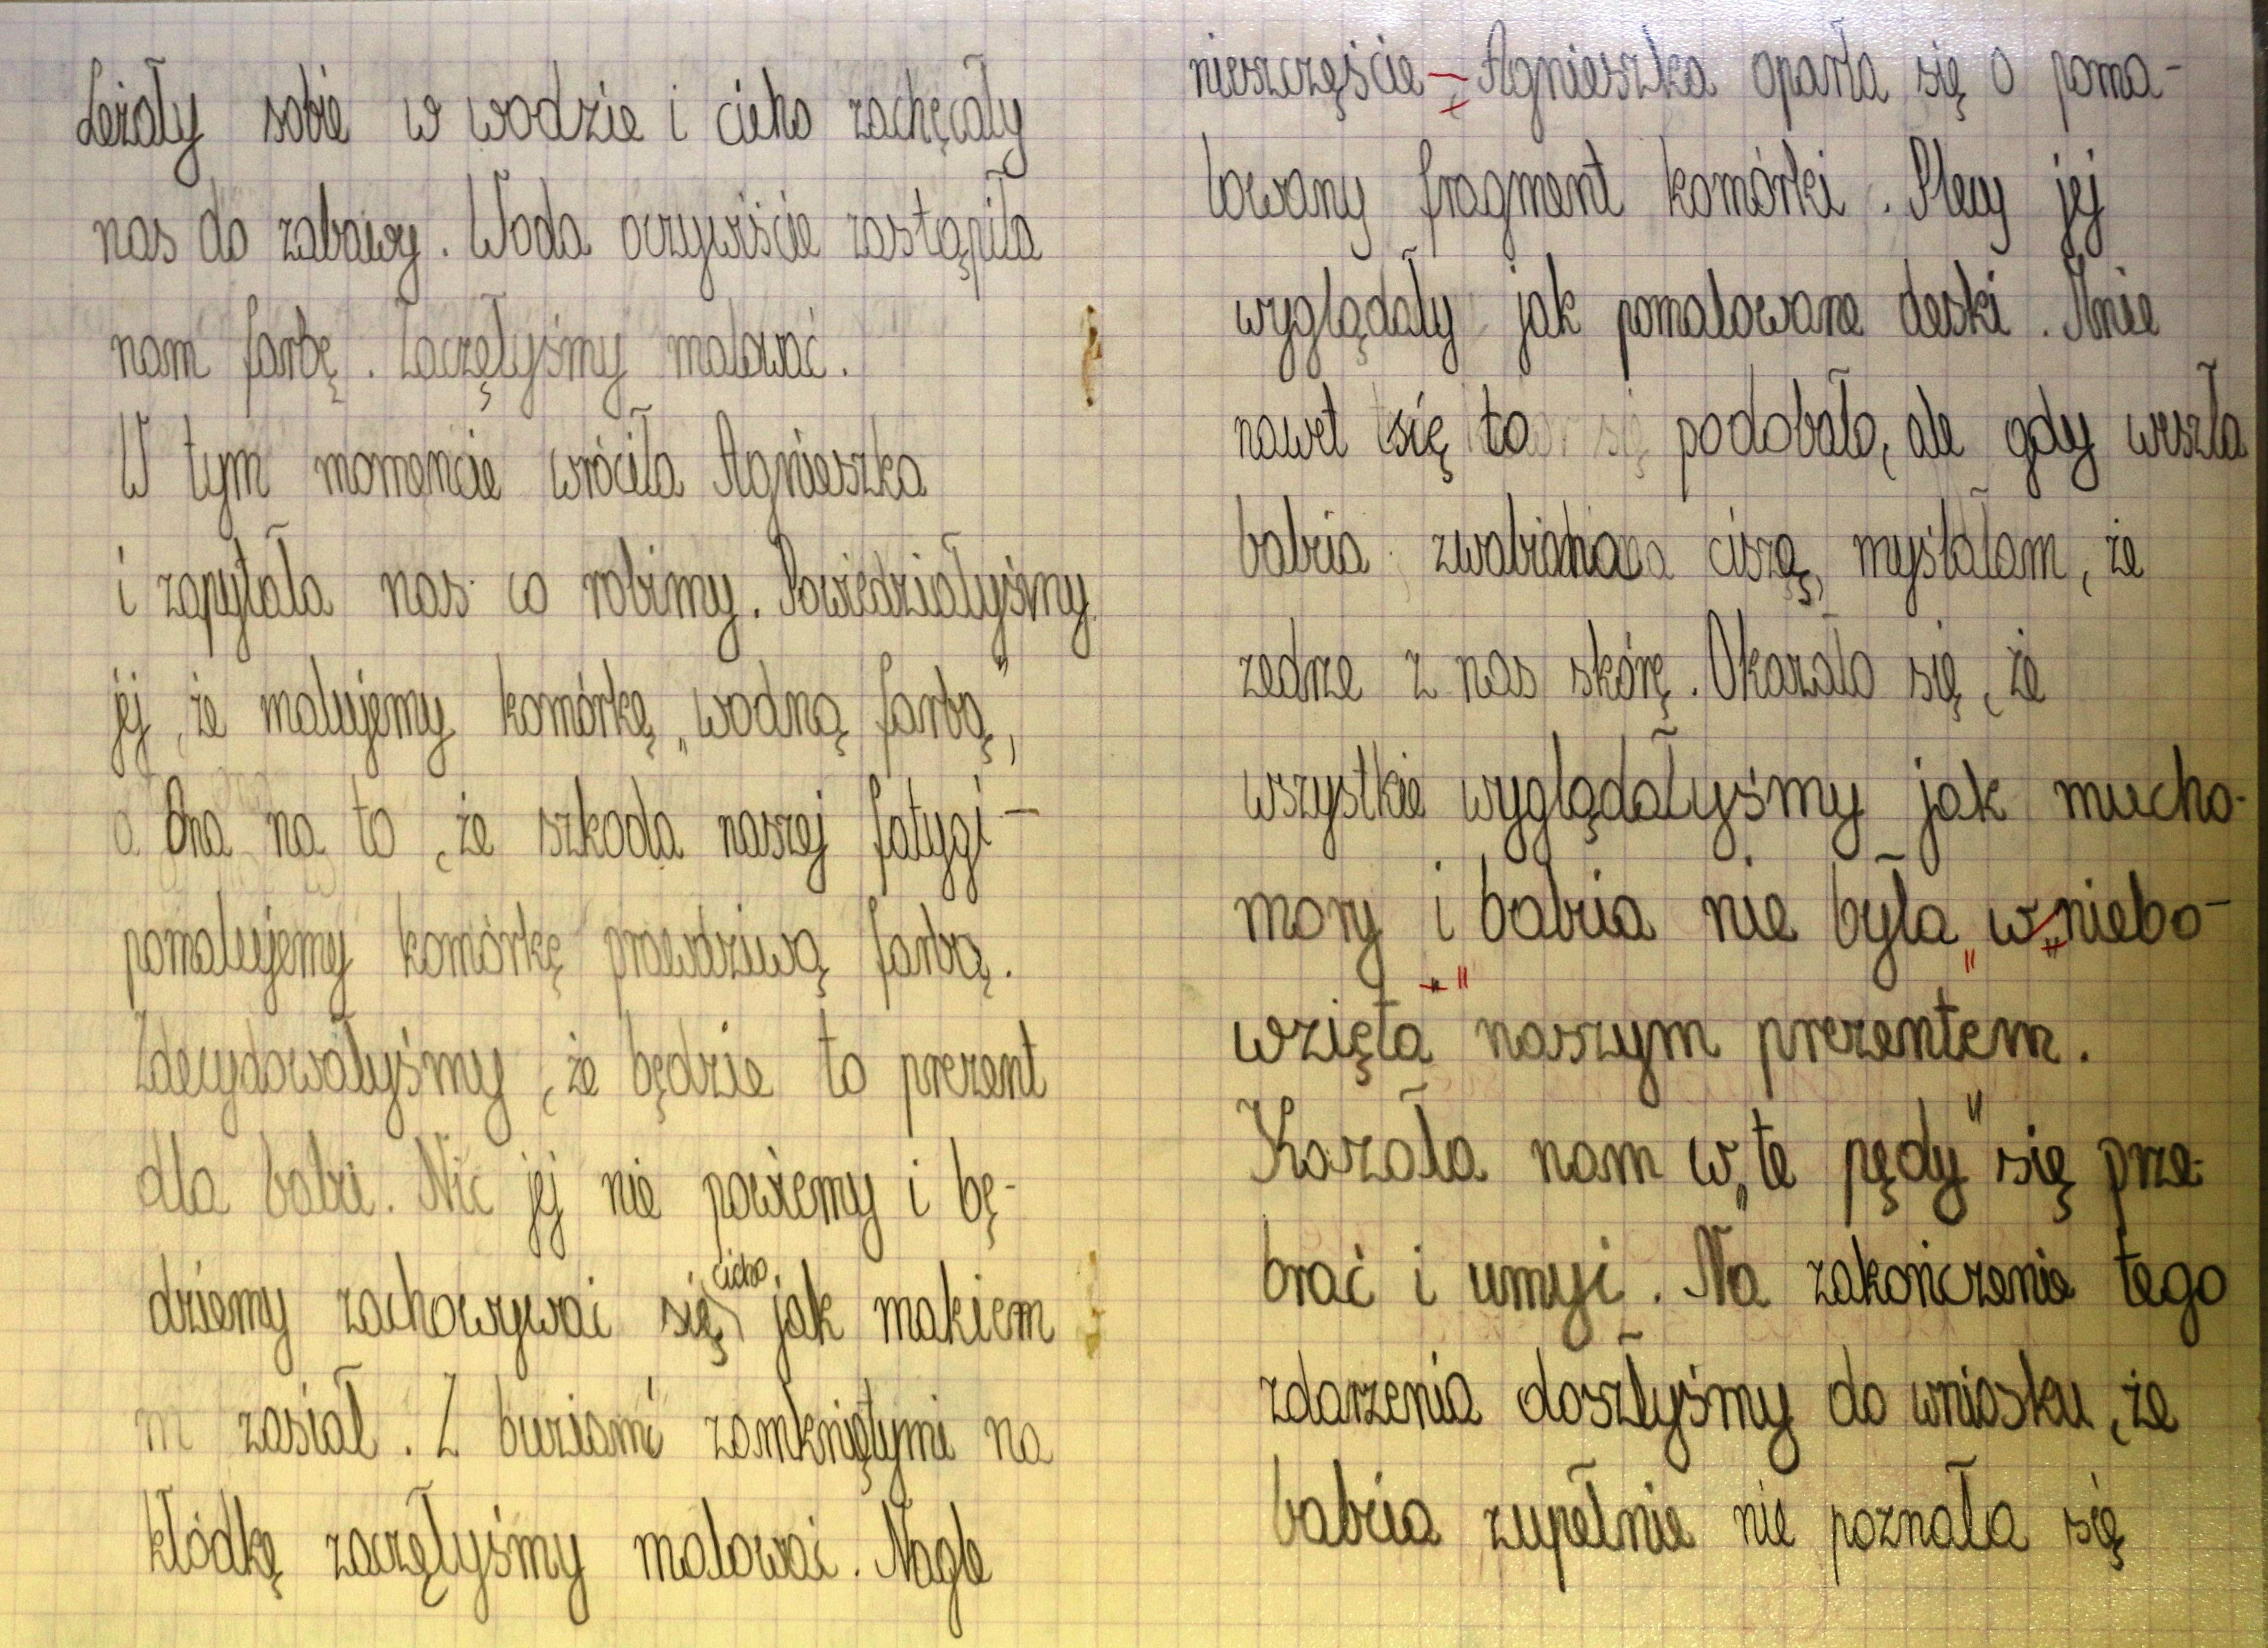 Leżały sobie w wodzie i cicho zachęcały
nas do zabawy. Woda oczywiście zastąpiła
nam farbę. Zaczęłyśmy malować.
W tym momencie wróciła Agnieszka
i zapytała nas co robimy. Powiedziałyśmy
jej, że malujemy komórkę „wodną farbą”,
Ona na to, że szkoda naszej fatygi –
pomalujemy komórkę prawdziwą farbą.
Zdecydowałyśmy, że będzie to prezent
dla babci. Nic jej nie powiemy i bę-
dziemy zachowywać się cicho jak makiem
zasiał. Z buziami zamkniętymi na
kłódkę zaczęłyśmy malować. Nagle
nieszczęście – Agnieszka oparła się o poma-
lowany fragment komórki. Plecy jej
wyglądały jak pomalowane deski. Mnie
nawet się to podobało, ale gdy weszła
babcia zwabiona ciszą, myślałam, że
zedrze z nas skórę. Okazało się, że
wszystkie wyglądałyśmy jak mucho-
mory i babcia nie była „wniebo-
wzięta” naszym prezentem.
Kazała nam w „te pędy” się prze-
brać i umyć. Na zakończenie tego
zdarzenia doszłyśmy do wniosku, że
babcia zupełnie nie poznała się